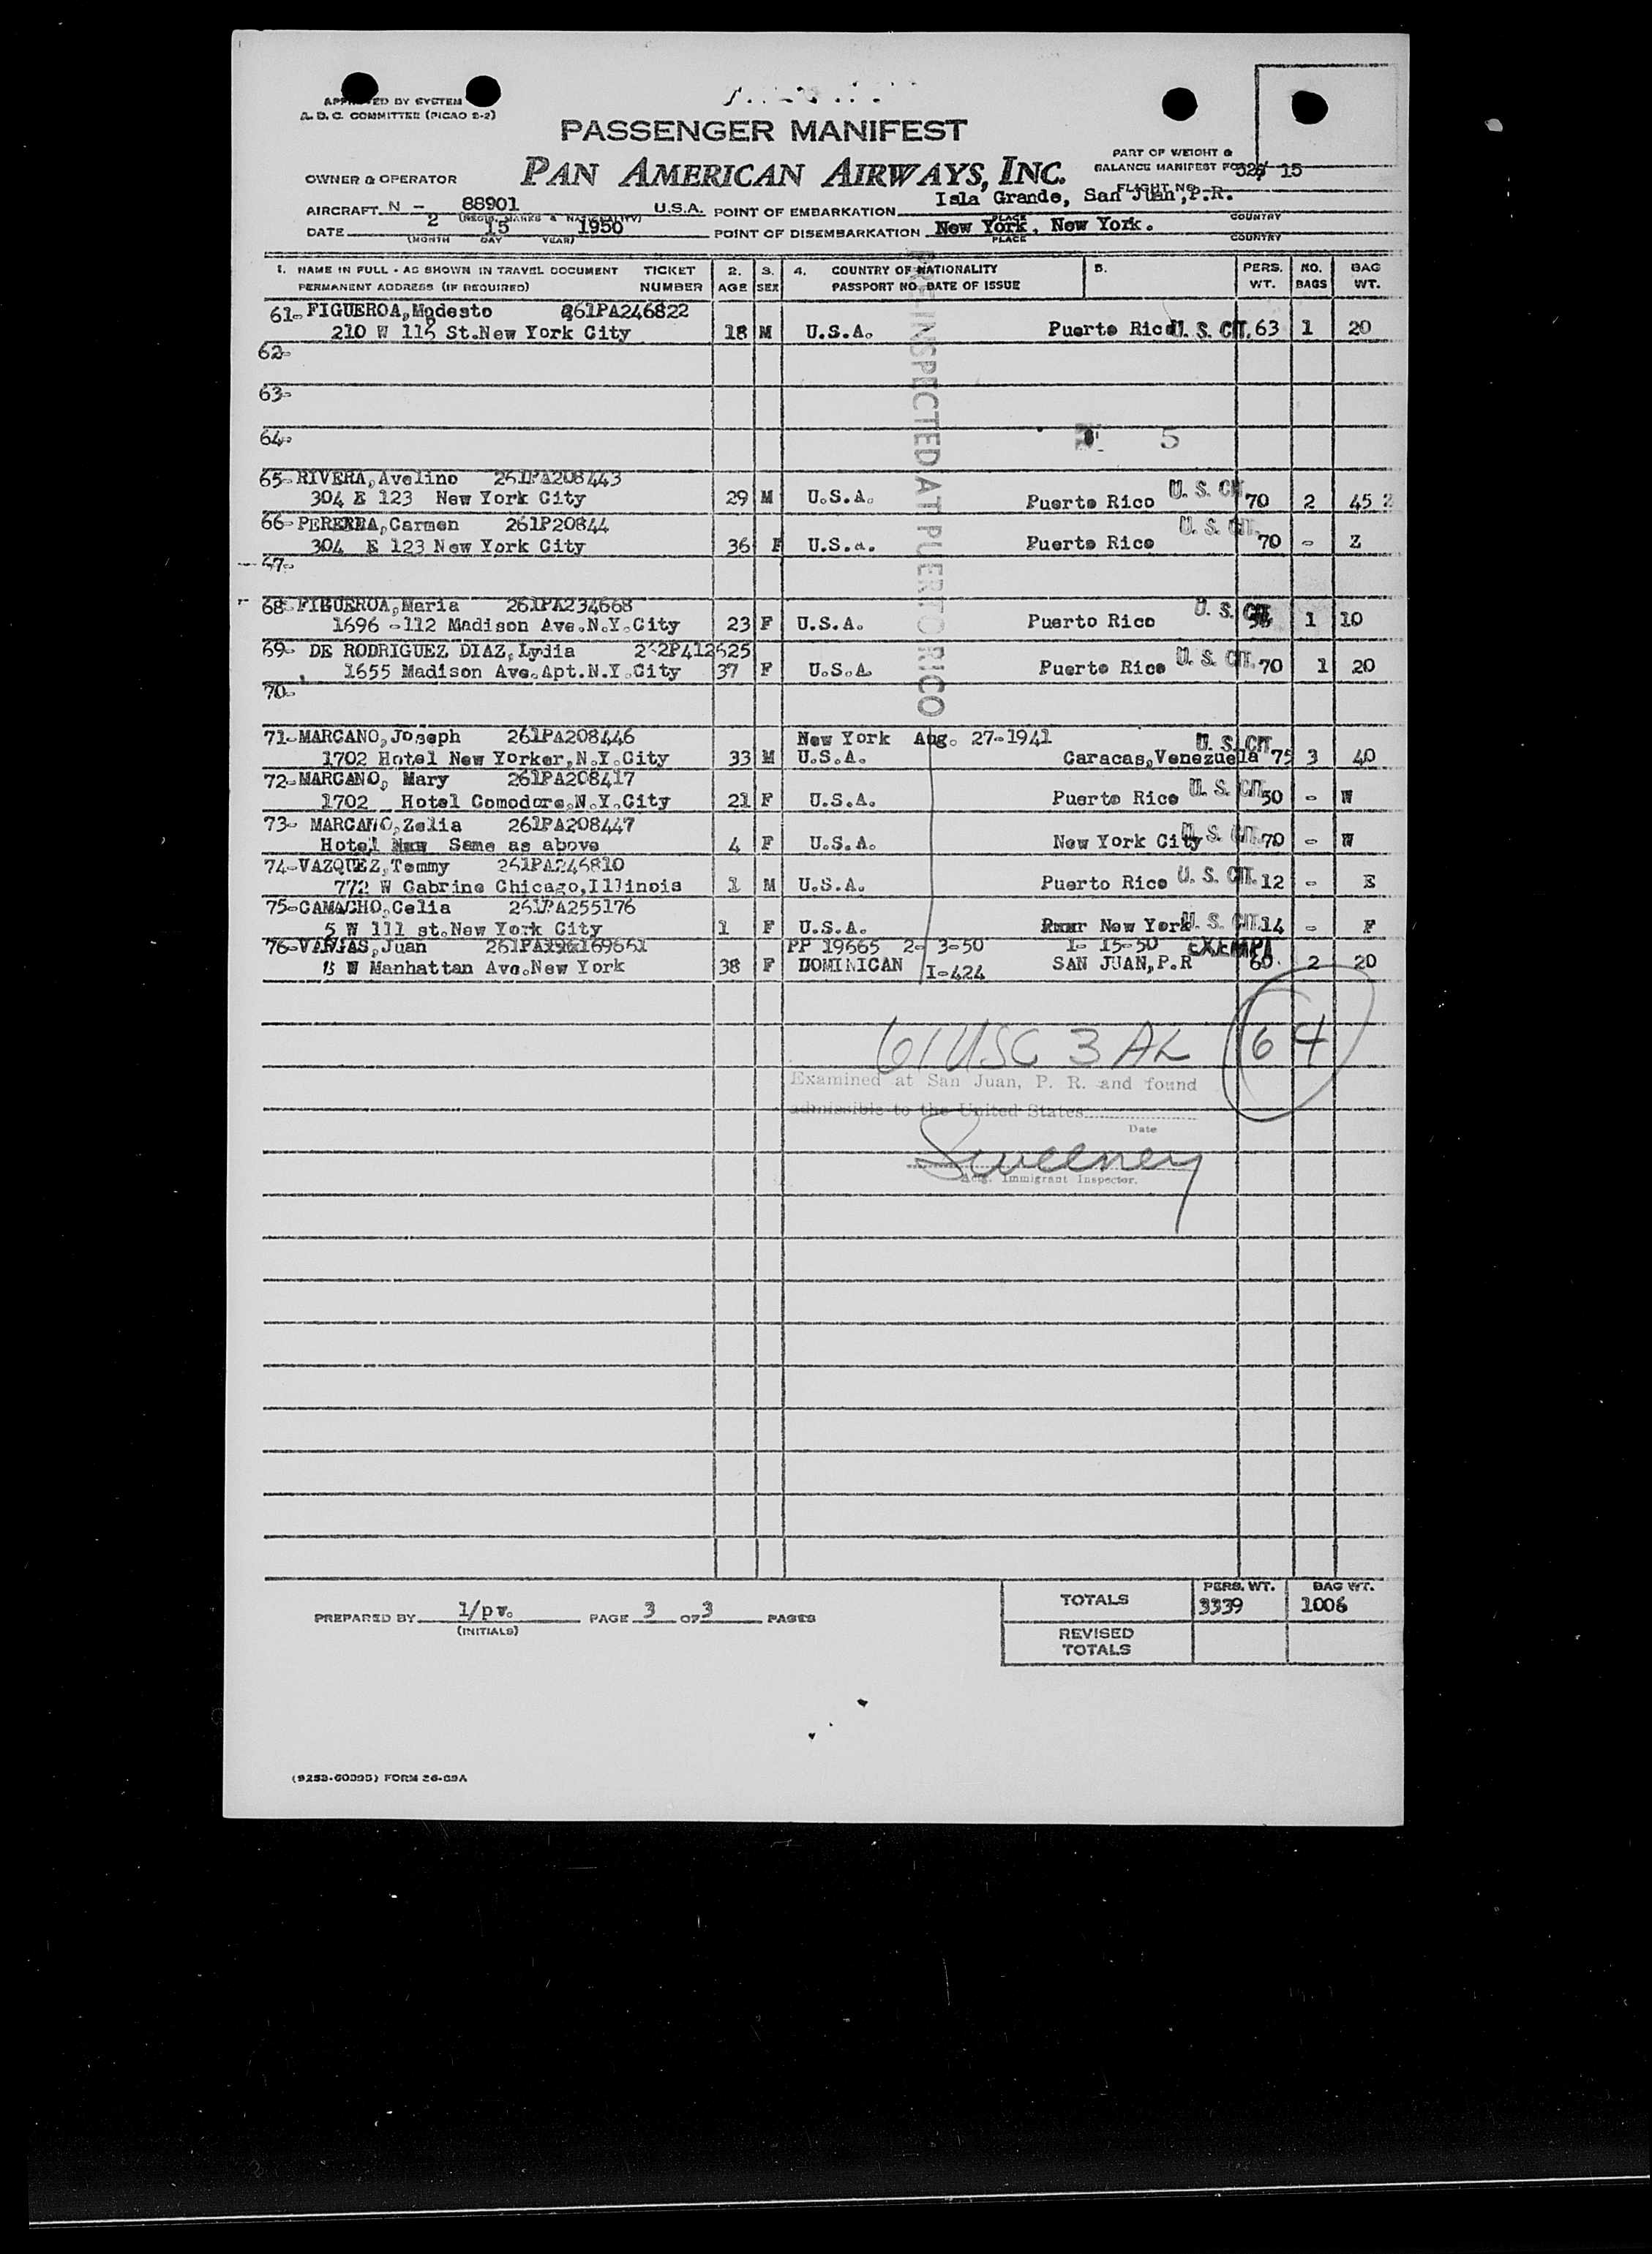 APPROVED BY SYSTEM
A. D. C. COMMITTEE (PICAO 2-2)
PASSENGER MANIFEST
PAN AMERICAN AIRWAYS, INC.
PART OF WEIGHT &
BALANCE MANIFEST FOR
526/ 15
FLIGHT NO.
OWNER & OPERATOR
AIRCRAFT N - 88901 U.S.A. POINT OF EMBARKATION Isla Grande, San Juan, P.R.
(REGIS. MARKS & NATIONALITY) PLACE COUNTRY
DATE 2 15 1950 POINT OF DISEMBARKATION New York, New York.
(MONTH DAY YEAR) PLACE COUNTRY
1. NAME IN FULL - AS SHOWN IN TRAVEL DOCUMENT TICKET 2. 3. 4. COUNTRY OF NATIONALITY 5. PERS. NO. BAG
PERMANENT ADDRESS (IF REQUIRED) NUMBER AGE SEX PASSPORT NO. DATE OF ISSUE WT. BAGS WT.
PRE-INSPECTED AT PUERTO RICO
61- FIGUEROA, Modesto 261PA246822
210 W 115 St. New York City 18 M U.S.A. Puerto Rico U. S. CIT. 63 1 20
62-
63-
64-
5
65- RIVERA, Avelino 261PA208443
304 E 123 New York City 29 M U.S.A. Puerto Rico U. S. CIT 70 2 45
66- PERERRA, Carmen 261P20844
304 E 123 New York City 36 F U.S.A. Puerto Rico U. S. CIT. 70 - Z
67-
68- FIGUEROA, Maria 261PA234668
1696 -112 Madison Ave. N.Y. City 23 F U.S.A. Puerto Rico U. S. CIT 1 10
69- DE RODRIGUEZ DIAZ, Lydia 262P412625
1655 Madison Ave. Apt. N.Y. City 37 F U.S.A. Puerto Rico U. S. CIT. 70 1 20
70-
71- MARCANO, Joseph 261PA208446 New York Aug. 27-1941
1702 Hotel New Yorker, N.Y. City 33 M U.S.A. Caracas, Venezuela U. S. CIT. 75 3 40
72- MARCANO, Mary 261PA208417
1702 Hotel Comodore, N.Y. City 21 F U.S.A. Puerto Rico U. S. CIT. 50 - W
73- MARCANO, Zelia 261PA208447
Hotel Same as above 4 F U.S.A. New York City U. S. CIT. 70 - W
74- VAZQUEZ, Tommy 261PA246810
772 W Cabrine Chicago, Illinois 1 M U.S.A. Puerto Rico U. S. CIT. 12 - E
75- CAMACHO, Celia 261PA255176
5 W 111 st. New York City 1 F U.S.A. New York U. S. CIT. 14 - F
76- VARIAS, Juan PP 19665 2- 3-50 1- 15-50 EXEMPT
W Manhattan Ave. New York 38 F DOMINICAN I-424 SAN JUAN, P.R 60 2 20
61 USC 3 AL 64
Examined at San Juan, P. R. and found
admissible to the United States
Date
Sweeney
Actg. Immigrant Inspector.
TOTALS PERS. WT. BAG WT.
3339 1006
PREPARED BY 1/pv. PAGE 3 OF 3 PAGES
(INITIALS)
REVISED
TOTALS
(9253-60395) FORM 26-09A